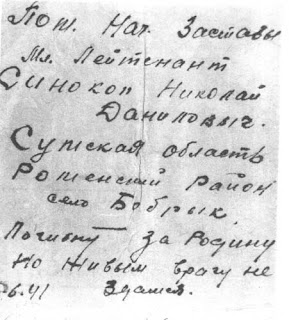 Пом. Нач. Заставы
Мл. Лейтенант
Синокоп Николай
Данилович.
Сумская область
Роменский Район
село Бобрык
Погибну За Родину
Но живым врагу не
6.41 Здамся.